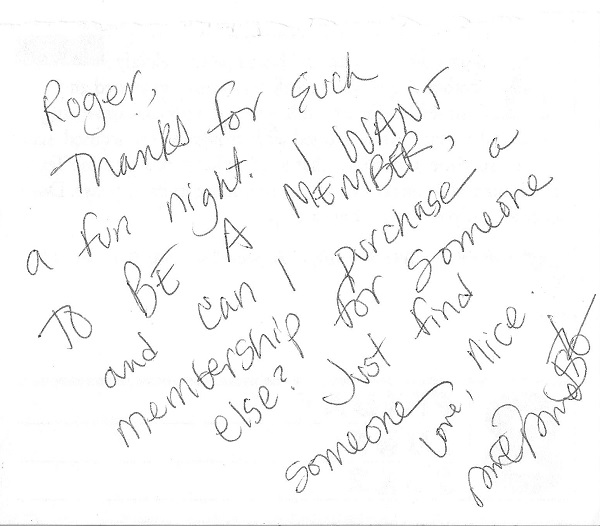 Roger,
Thanks for such
a fun night. I WANT
TO BE A MEMBER,
and can I purchase a
membership for someone
else? Just find
someone nice.
Love,